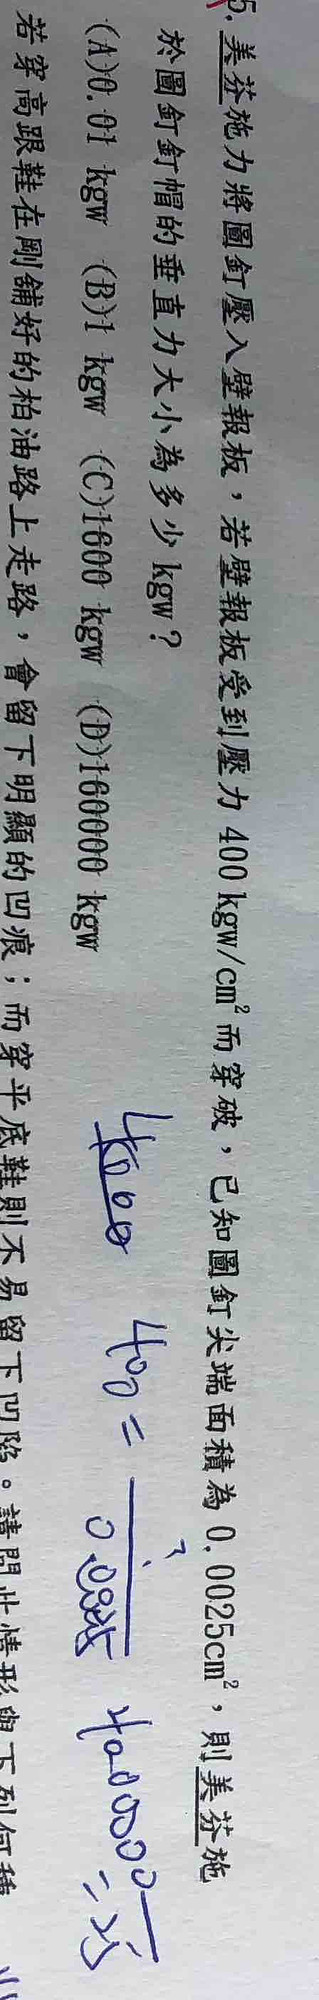 5. 美芬施力將圖釘壓入壁報板，若壁報板受到壓力 400 kgw/cm²而穿破，已知圖釘尖端面積為 0.0025cm²，則美芬施
於圖釘釘帽的垂直力大小為多少 kgw？
(A)0.01 kgw (B)1 kgw (C)1600 kgw (D)160000 kgw
400 = ? / 0.0025
4000000 / = 25
若穿高跟鞋在剛鋪好的柏油路上走路，會留下明顯的凹痕；而穿平底鞋則不易留下凹陷。請問此情形與下列何種